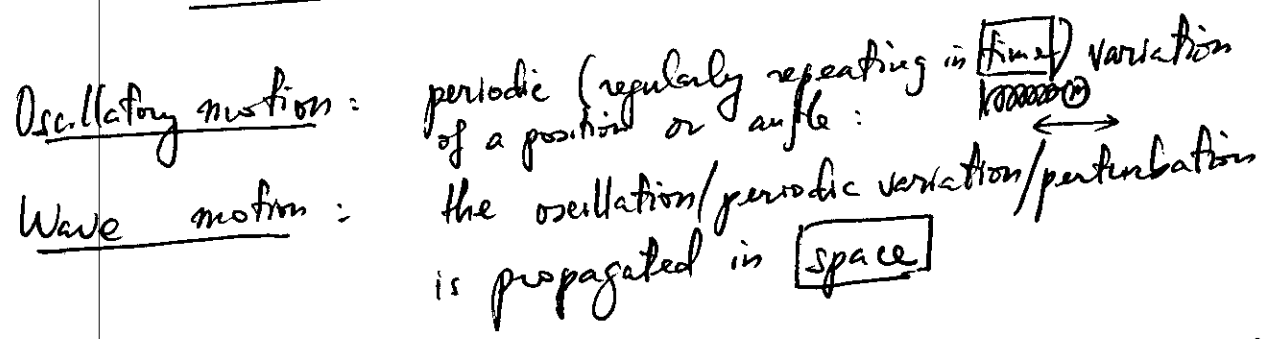 Oscillatory motion: periodic (regularly repeating in time) variation
of a position or angle:
m
Wave motion: the oscillation/periodic variation/perturbation
is propagated in space